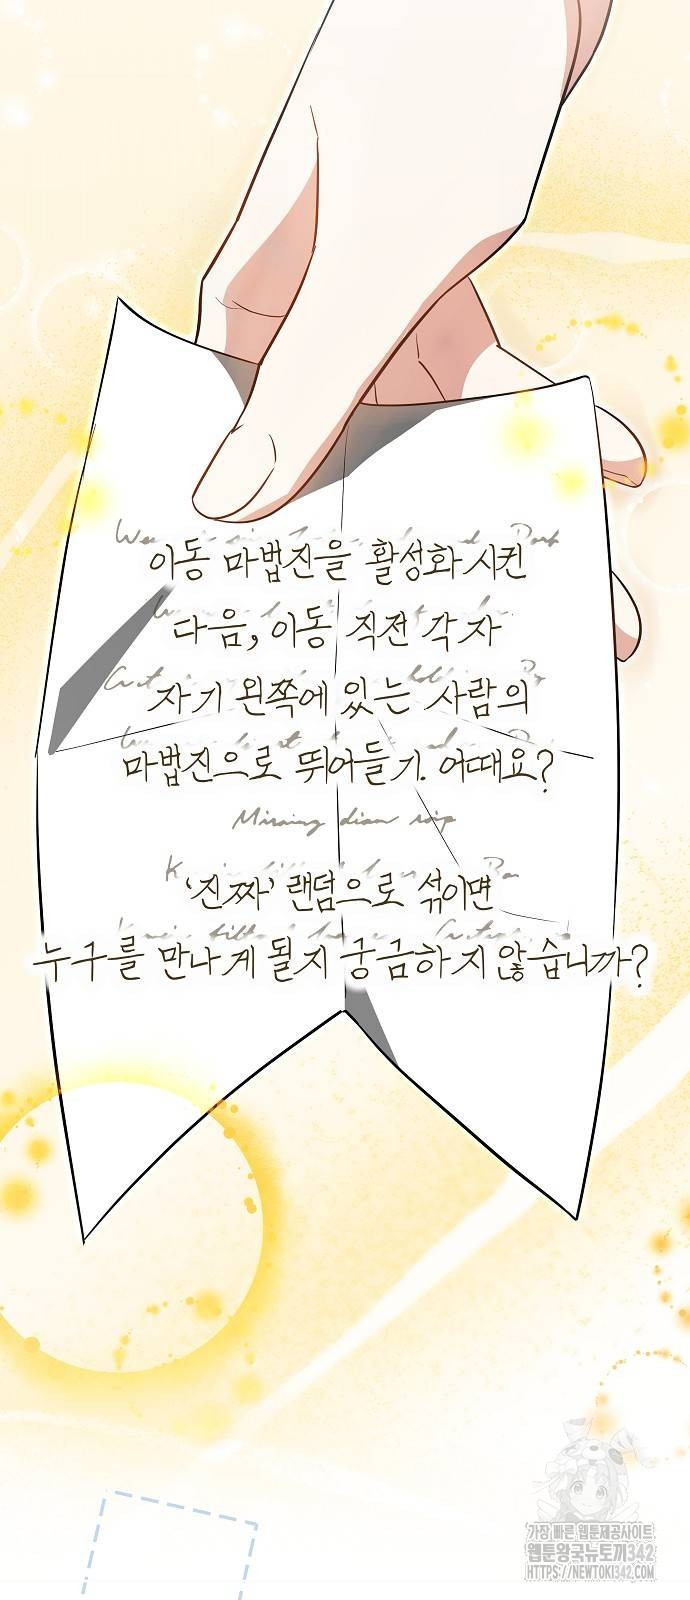 이동 마법진을 활성화시킨
다음, 이동 직전 각자
자기 왼쪽에 있는 사람의
마법진으로 뛰어들기. 어때요?
'진짜' 랜덤으로 섞이면
누구를 만나게 될지 궁금하지 않습니까?
가장 빠른 웹툰제공사이트
웹툰왕국뉴토끼342
HTTPS://NEWTOKI342.COM